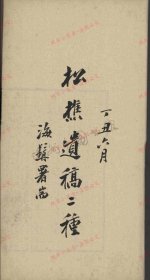 丁丑六月
松樵遺稿二種
海髯署耑